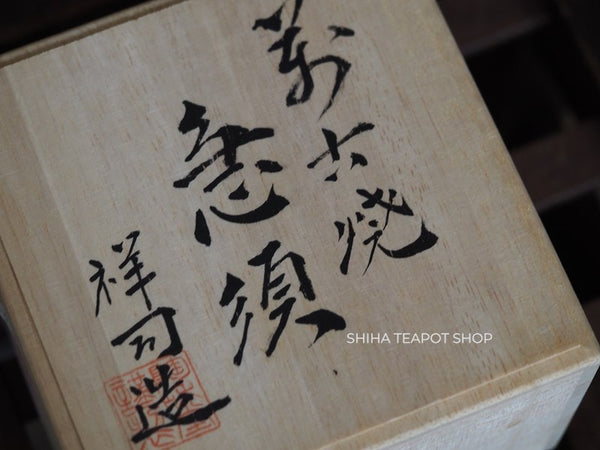 萬古焼
急須
祥司造
SHIHA TEAPOT SHOP